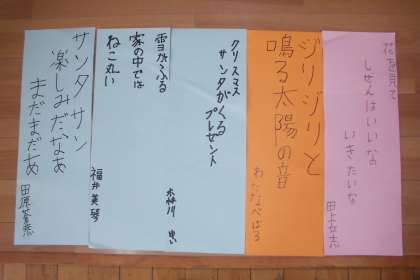 花を見て
しぜんはいいな
いきたいな
ジリジリと
鳴る太陽の音
わたなべはる
クリスマス
サンタがくる
プレゼント
森川
雪がふる
家の中では
ねこ丸い
福井美琴
サンタサン
楽しみだなあ
まだまだあ
田原